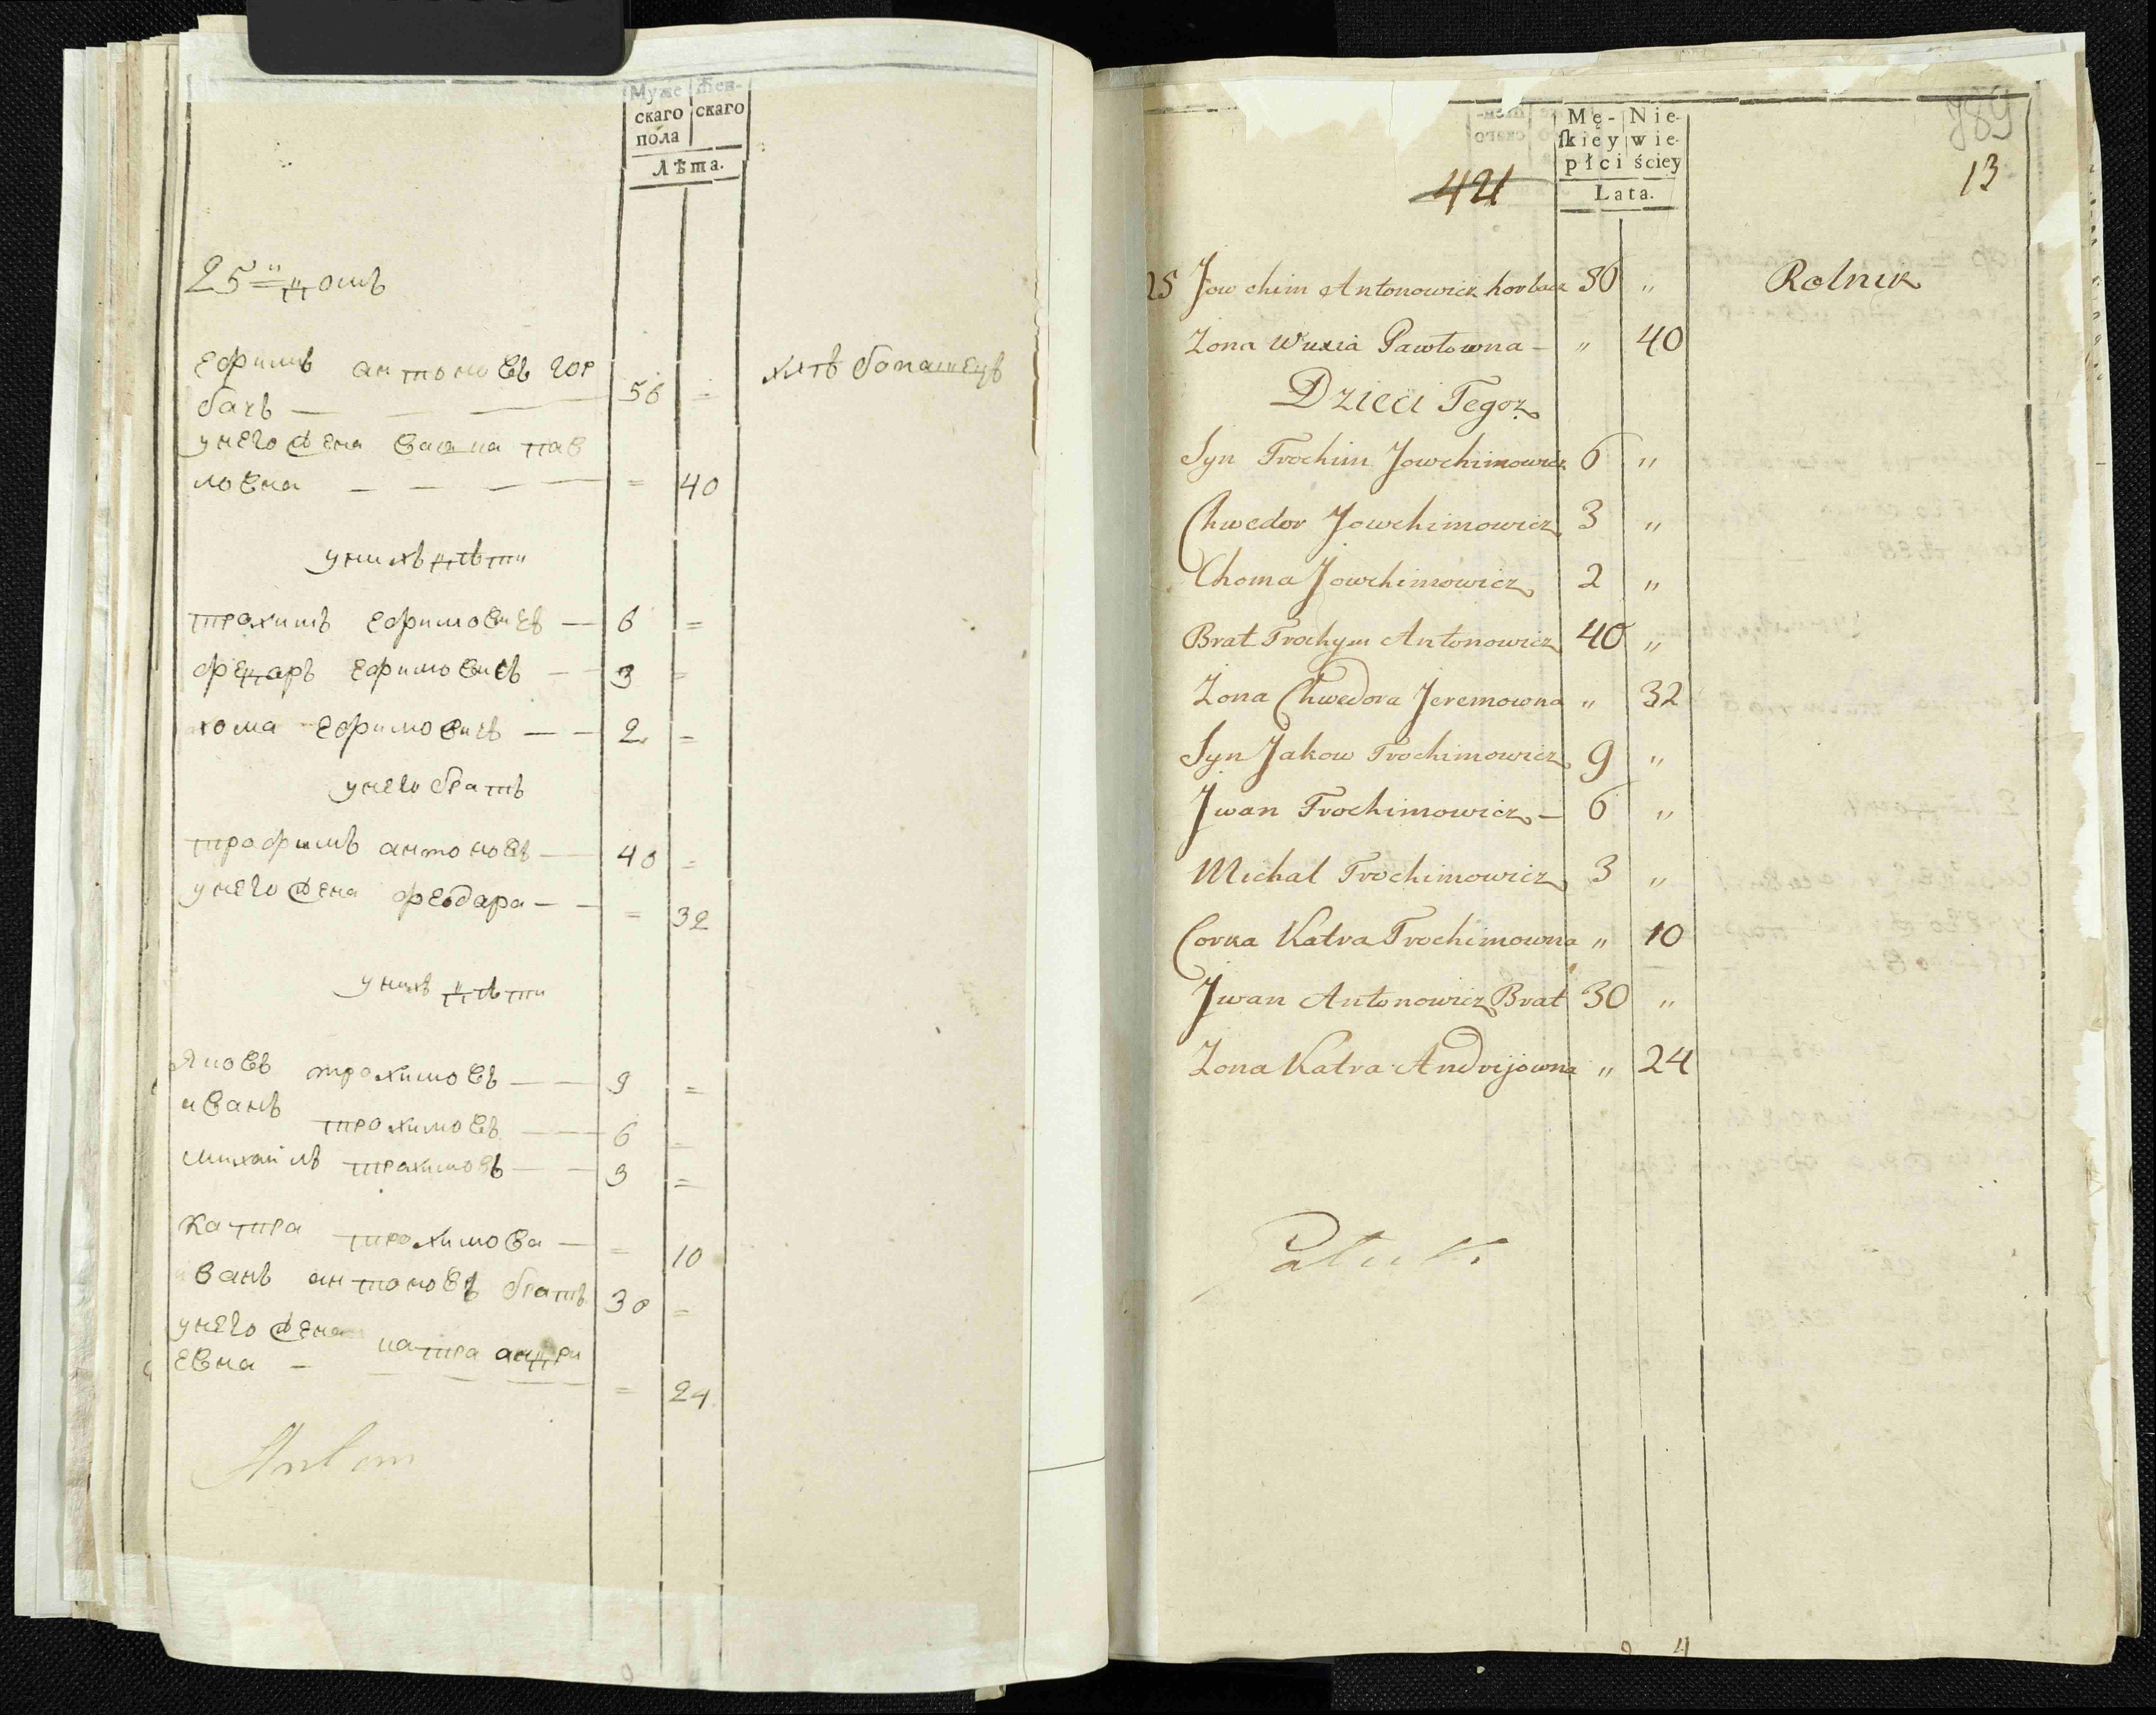 Муже Жен-
скаго скаго
пола
Лѣта.
25 домъ
Ефимъ антоновъ гор
бачъ — 56 =
хлѣбопашецъ
унего жена пав
ловна — = 40
унихъ дѣти
трахимъ Ефимовичъ — 6 =
федаръ Ефимовичъ — 3 =
хома Ефимовичъ — 2 =
унего братъ
трофимъ антоновъ — 40 =
унего жена феодара — = 32
унихъ дѣти
Яковъ трахимовъ — 9 =
иванъ трохимовъ — 6 =
михайлъ трахимовъ — 3 =
Катра трохимова — = 10
иванъ антоновъ братъ 30 =
унего жена катра андри
евна — = 24
789
Mę- Nie-
ſkiey wie-
płci ściey
Lata.
421
13
25 Jowchim Antonowicz horbacz 56 „ Rolnik
Zona Pawłowna — „ 40
Dzieci Tegoz
Syn Trochim Jowchimowicz 6 „
Chwedor Jowchimowicz 3 „
Choma Jowchimowicz 2 „
Brat Trochym Antonowicz 40 „
Zona Chwedora Jeremowna „ 32
Syn Jakow Trochimowicz 9 „
Jwan Trochimowicz — 6 „
Michał Trochimowicz 3 „
Corka Katra Trochimowna „ 10
Jwan Antonowicz Brat 30 „
Zona Katra Andrijowna „ 24